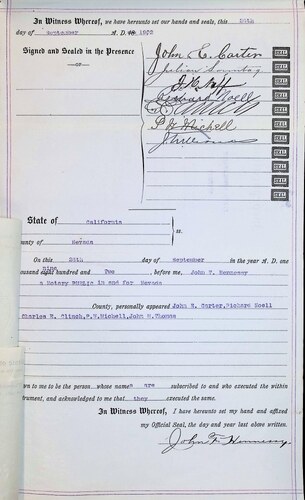 In Witness Whereof, we have hereunto set our hands and seals, this 26th
day of September A. D. 1902
Signed and Sealed in the Presence
John E. Carter SEAL
SEAL
SEAL
Richard Noell SEAL
SEAL
P. V. Michell SEAL
SEAL
SEAL
SEAL
SEAL
State of California
ss.
County of Nevada
On this 26th day of September in the year A. D. one
nine
thousand eight hundred and Two before me, John F. Hennessy
a Notary Public in and for Nevada
County, personally appeared John E. Carter, Richard Noell
Charles E. Clinch, P.V. Michell, John H. Thomas
own to me to be the person whose names are subscribed to and who executed the within
trument, and acknowledged to me that they executed the same.
In Witness Whereof, I have hereunto set my hand and affixed
my Official Seal, the day and year last above written.
John F. Hennessy